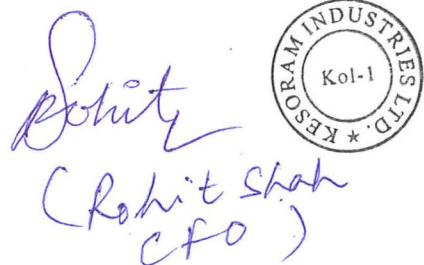 Rohit
(Rohit Shah
CFO)
KESORAM INDUSTRIES LTD. *
Kol-1